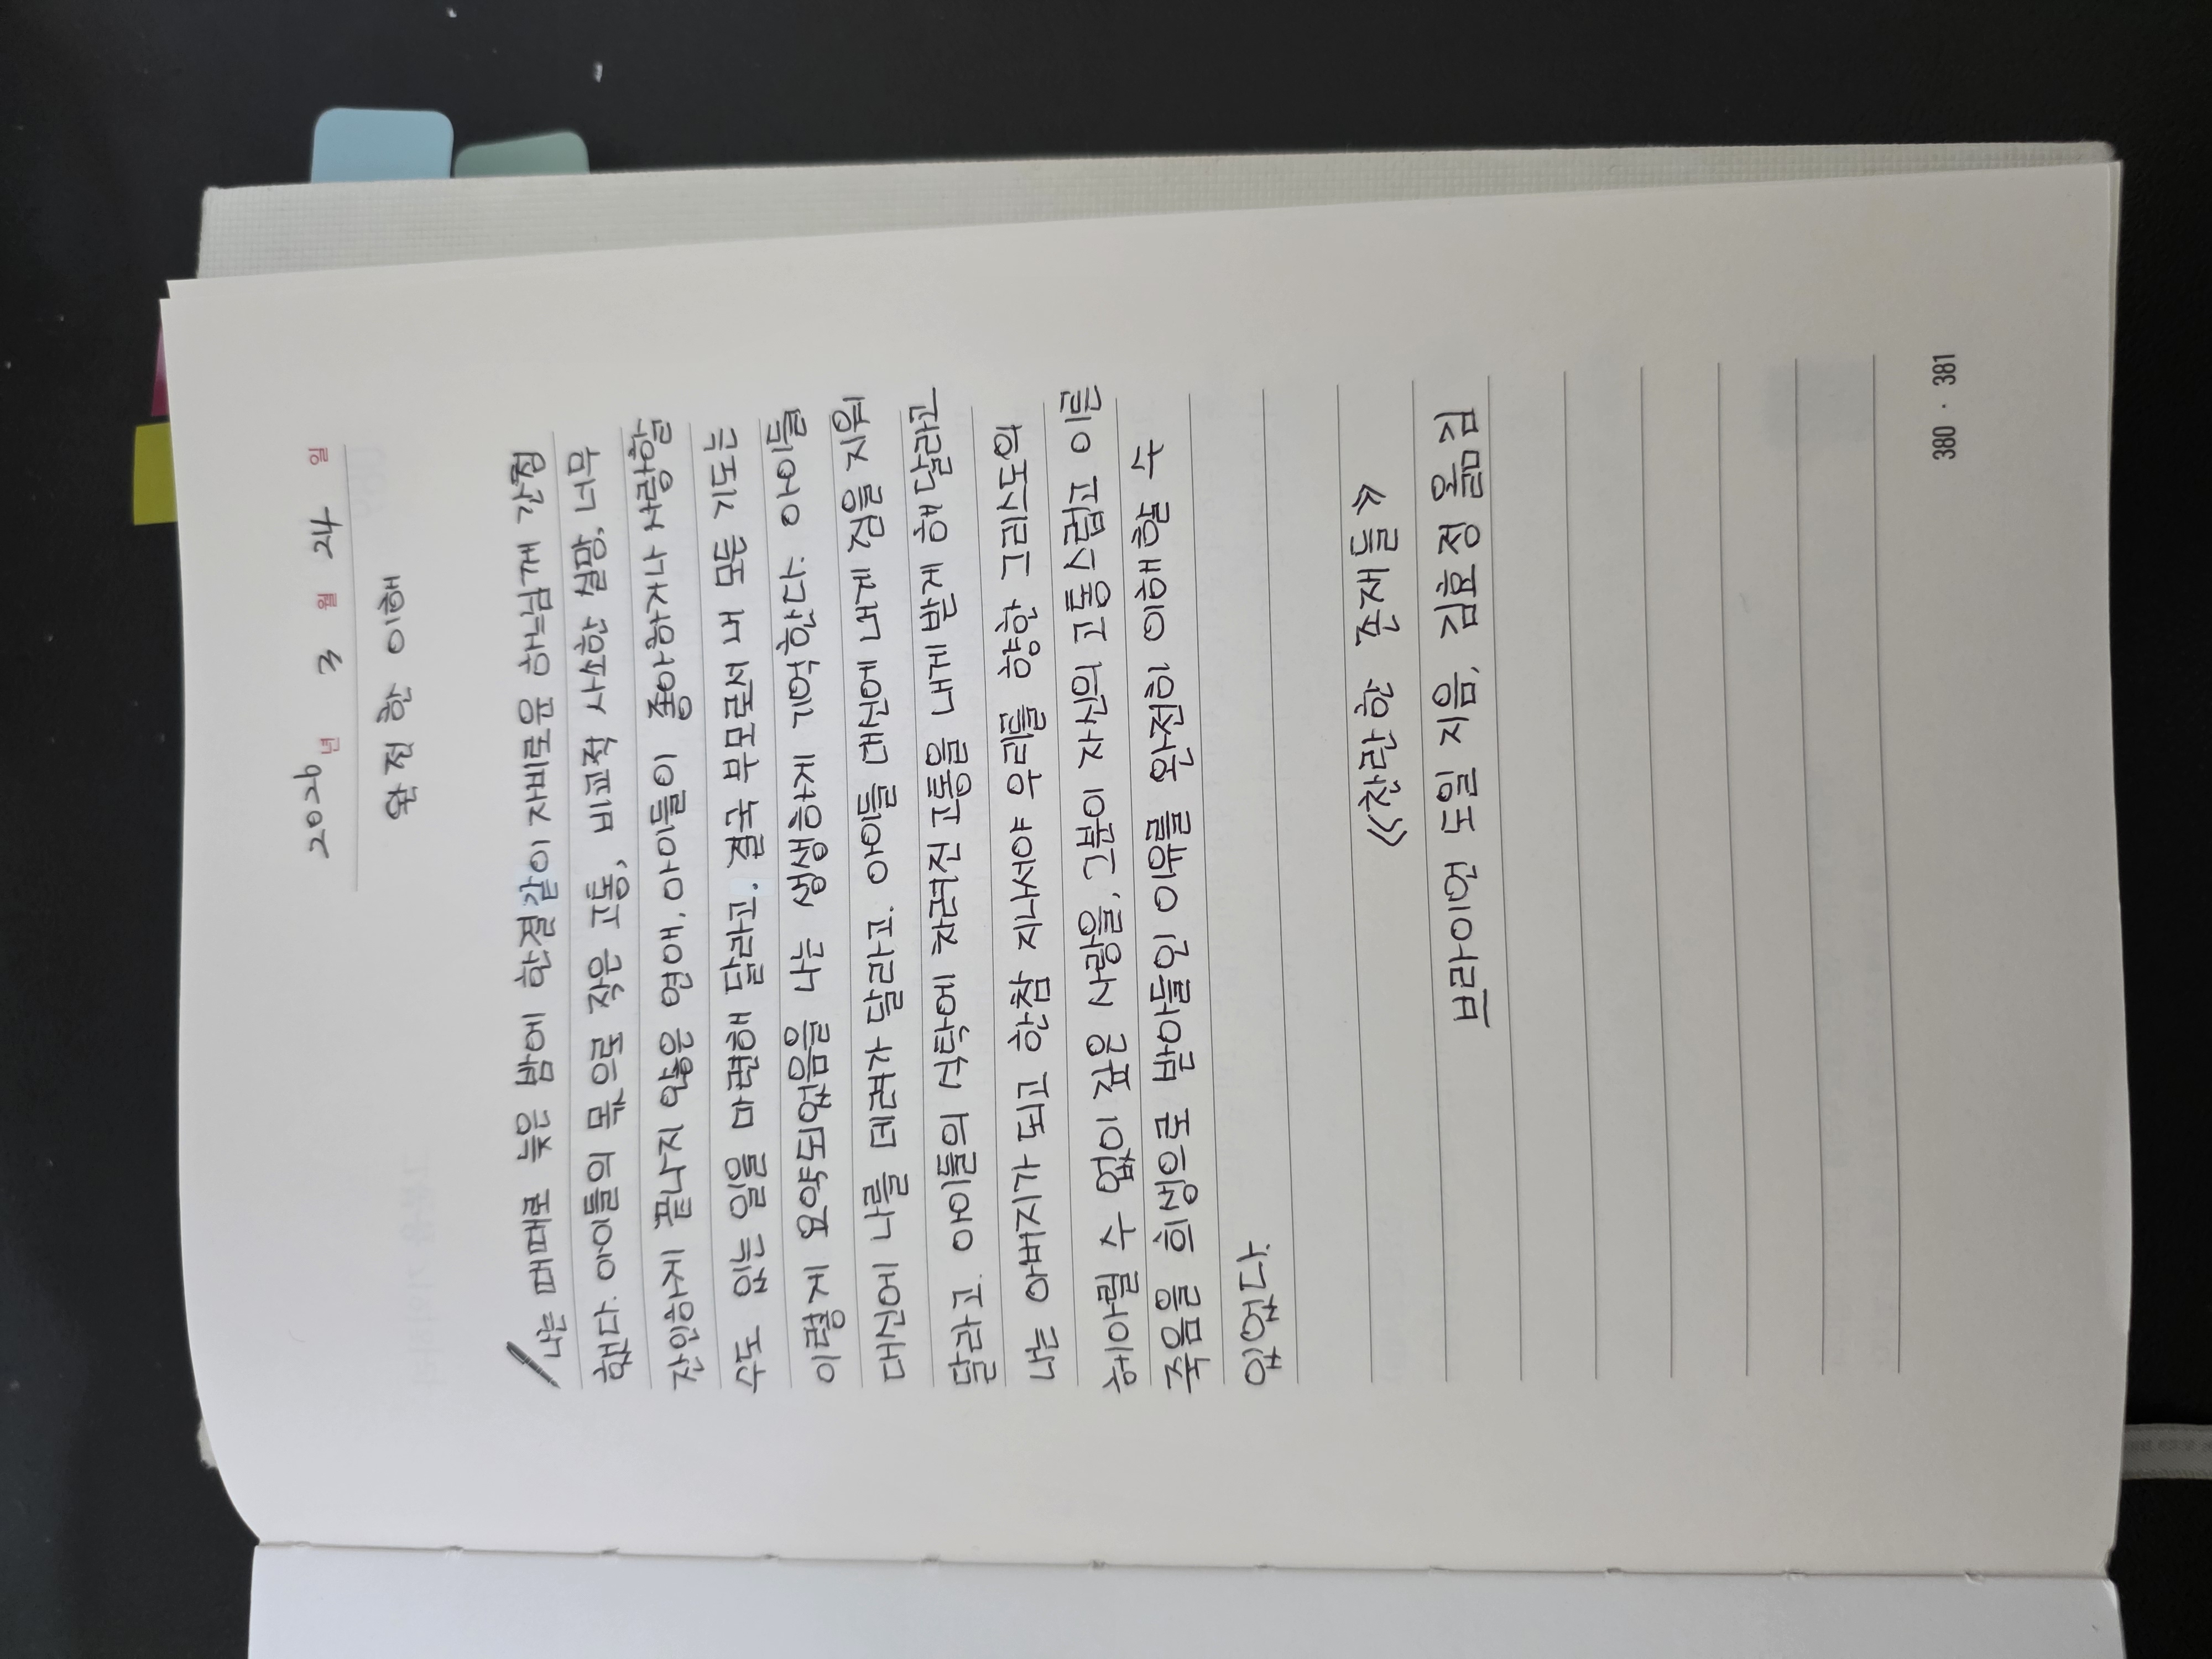 2026년 3월 24일
완전한 이해
나는 때때로 늦은 밤에 한결같이 자비로운 하느님께 간청
했다. 아이들의 몫으로 작은 고통, 비교적 사소한 실망, 너무
잔인하게 끝나지 않을 연애, 아이들이 좋아하거나 사랑할
수도 있는 일을 마련해 달라고. 결국 부모로서 내 모든 기도는
이렇게 요약되었음을 나는 생생하게 기억한다: 아이들
대신에 나를 데려가 달라고. 아이들 대신에 내게 짐을 지워
달라고. 아이들의 식탁에 차려진 고통을 내게 받게 해 달라고
나는 아버지가 되고 한참 지나서야 우리를 향한 그리스도의
헤아릴 수 없이 깊은 사랑을, 그분이 자신의 고통스럽고 이른
죽음을 희생으로 받아들인 이유를 완전히 이해할 수
있었다.
《찬란한 존재들》
브라이언 도일 지음, 김효정 옮김
380 · 381